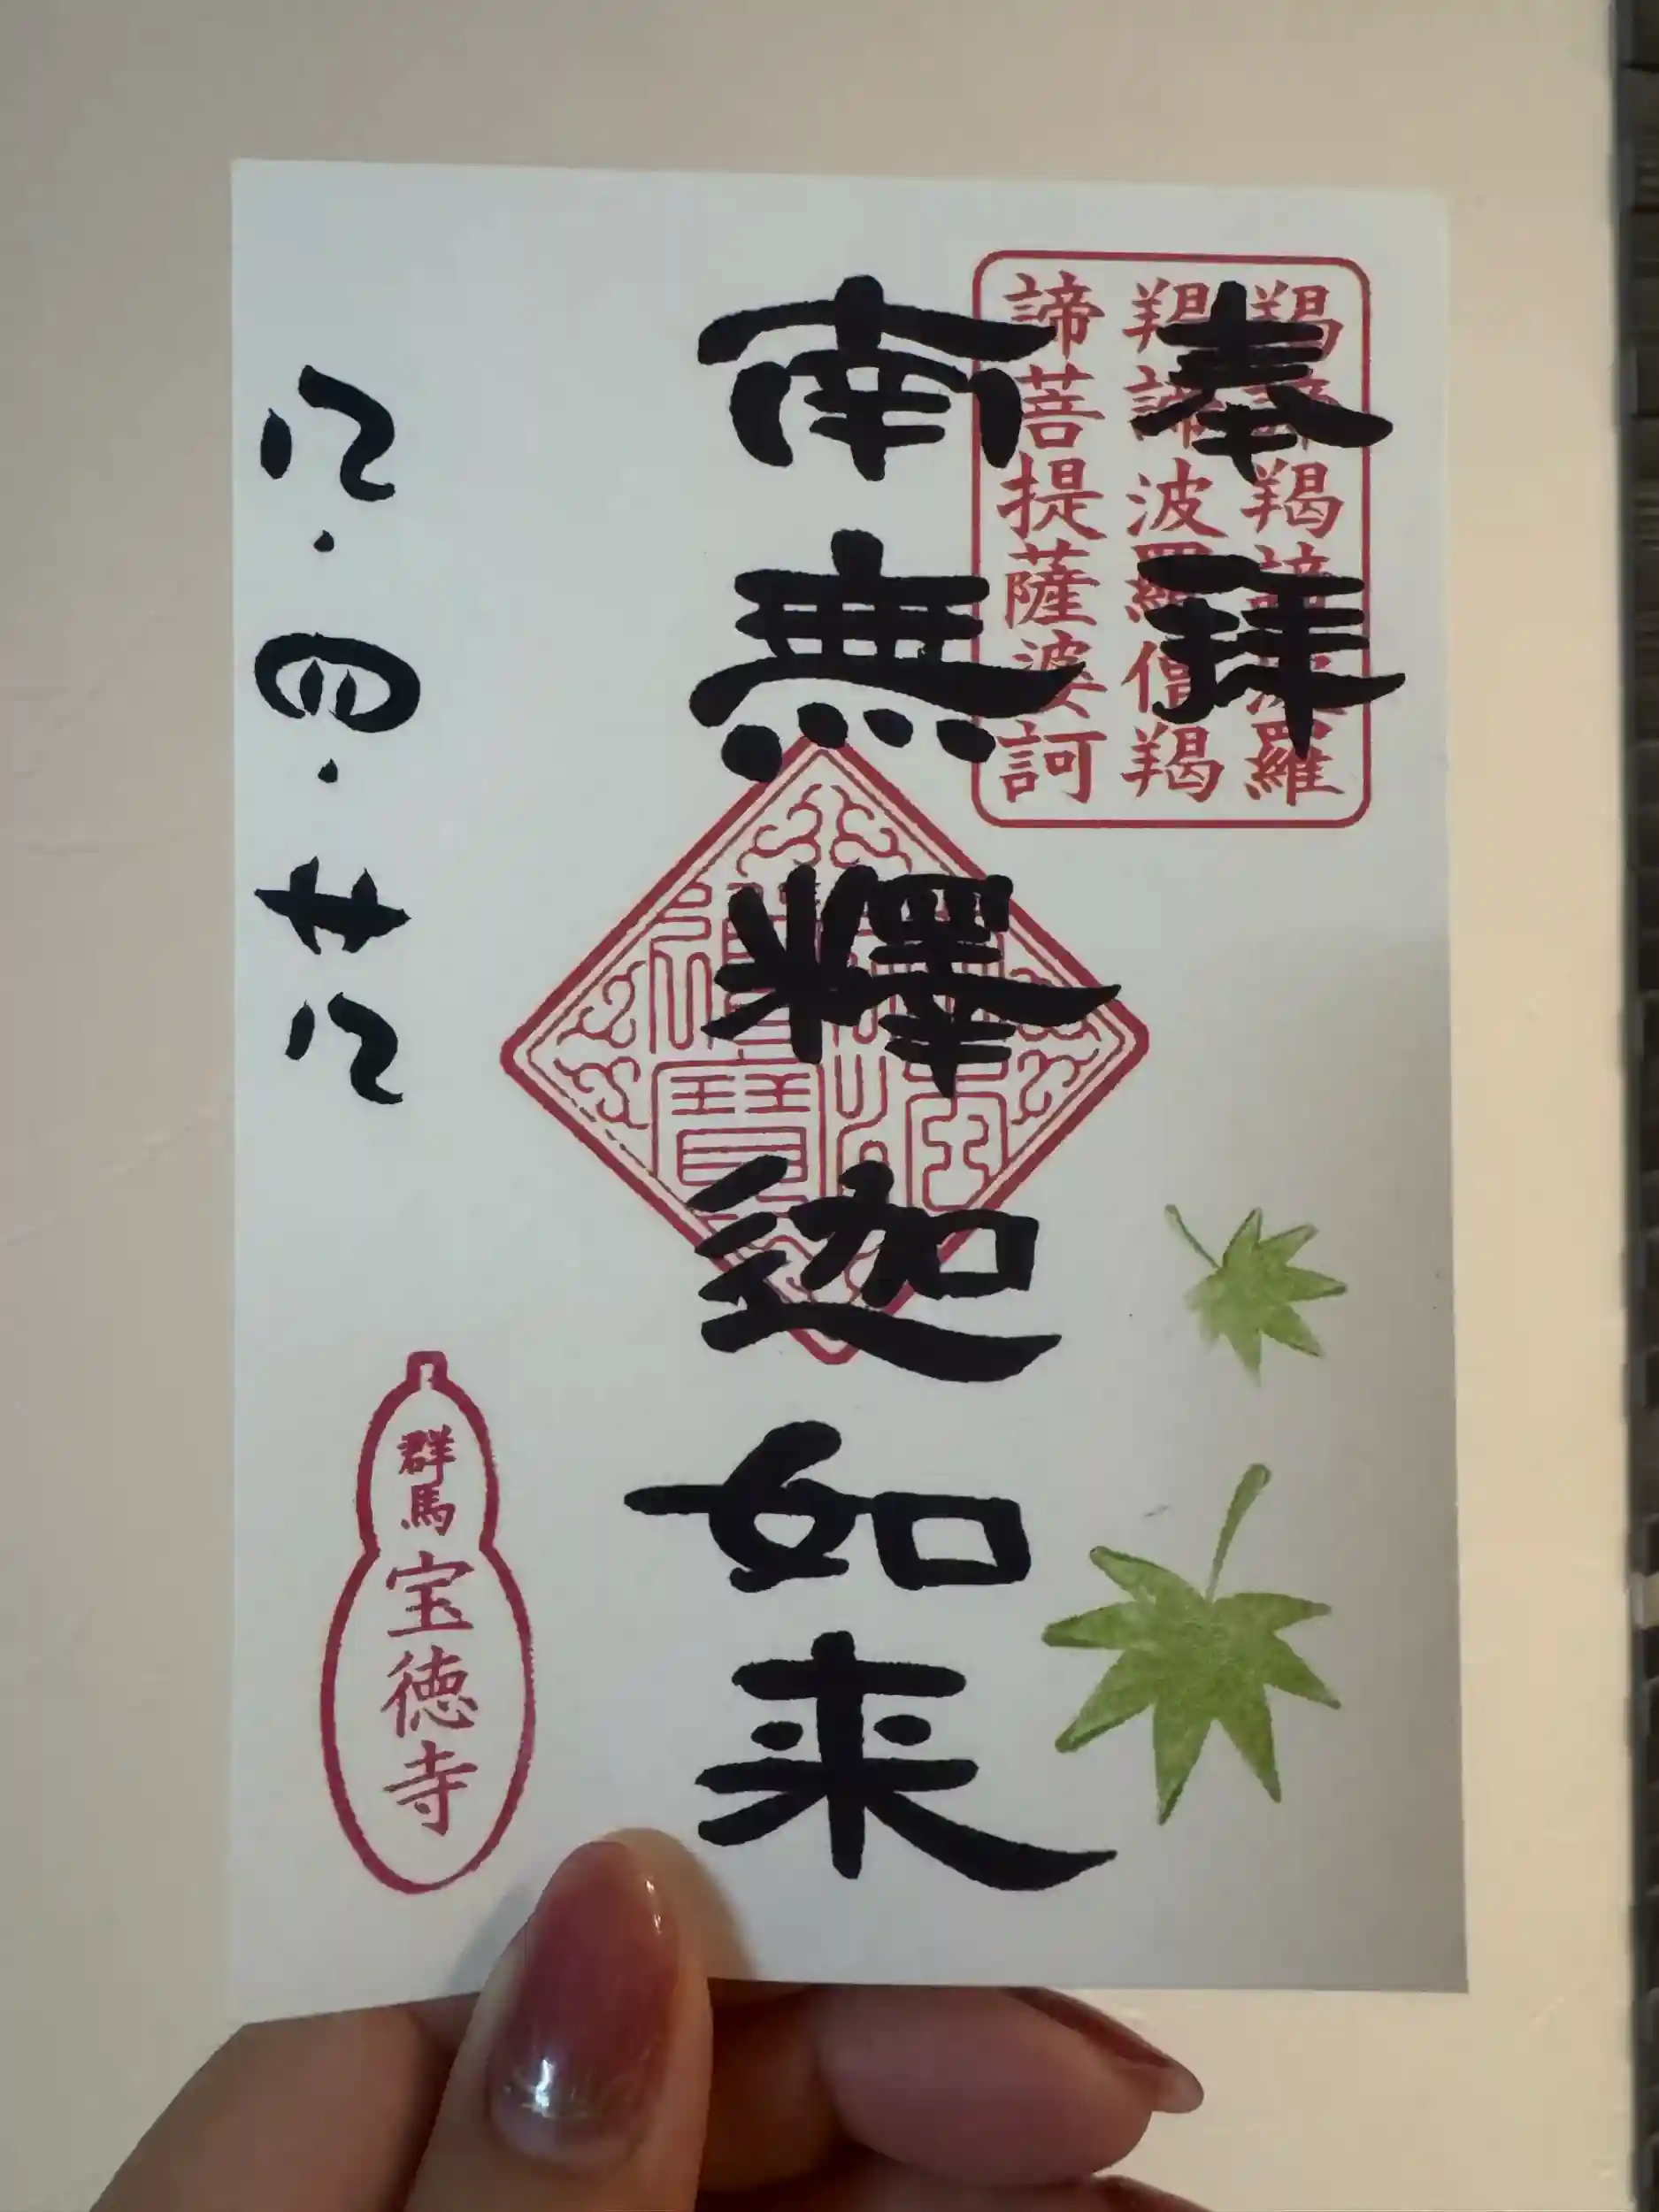 奉拝
羯諦羯諦波羅
羯諦波羅僧羯
諦菩提薩婆訶
南無釋迦如来
八・四・廿八
群馬
宝徳寺